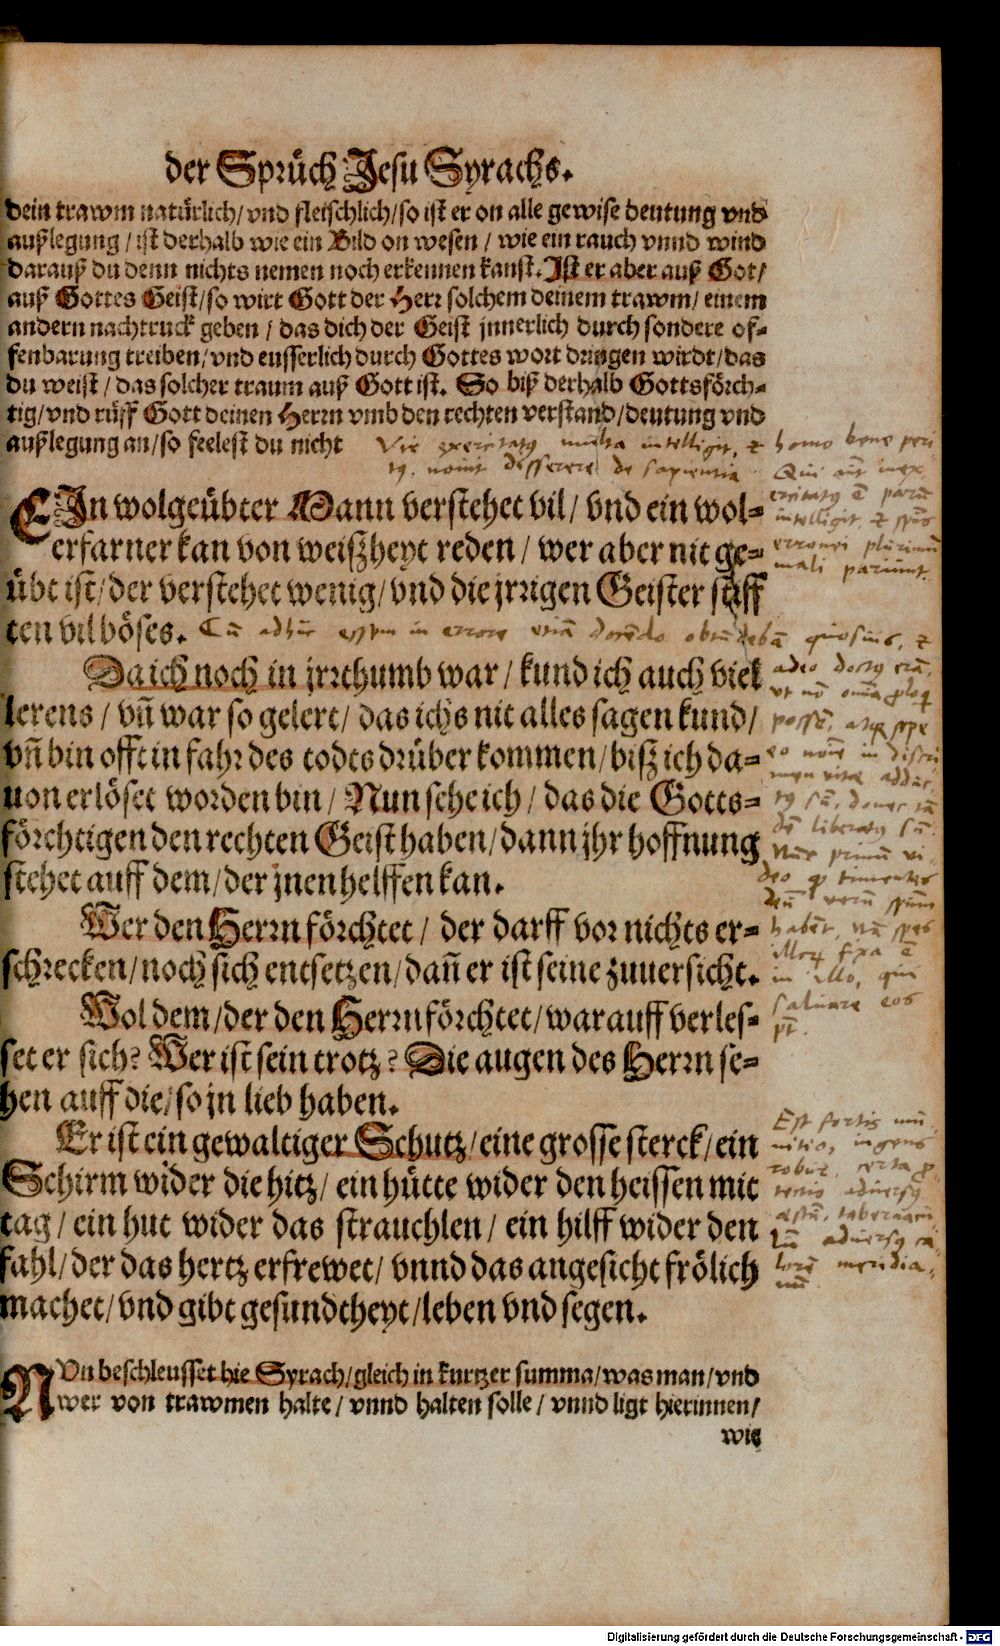 der Sprüch Jesu Syrachs.
dein trawm natürlich/ vnd fleischlich/ so ist er on alle gewise deutung vnd
außlegung / ist derhalb wie ein Bild on wesen / wie ein rauch vnnd wind
darauß du denn nichts nemen noch erkennen kanst. Ist er aber auß Got/
auß Gottes Geist/ so wirt Gott der Herr solchem deinem trawm/ einem
andern nachtruck geben / das dich der Geist jnnerlich durch sondere of-
fenbarung treiben/ vnd eusserlich durch Gottes wort dringen wirdt/ das
du weist / das solcher traum auß Gott ist. So biß derhalb Gottsförch-
tig/ vnd rüff Gott deinen Herrn vmb den rechten verstand/ deutung vnd
außlegung an/ so feelest du nicht
Vir exercitatq multa intelligit, et homo bene peri
tq. novit disserere de sapientia.
Qui aut inex
ercitatq e parū
intelligit, et spūs
erronei plurimū
mali pariunt.
EIn wolgeübter Mann verstehet vil/ vnd ein wol-
erfarner kan von weißheyt reden / wer aber nit ge-
übt ist/ der verstehet wenig/ vnd die jrrigen Geister stiff
ten vil böses.
Cū adhuc essem in errore etiā docēdo obtūdebā quosuis, et
adeo doctq erā,
vt nō oīa ꝓloq
possē, atq sepe
eo noīe in discri
men vitæ adduc
tq sū, donec tā
dē liberatq sū.
Nūc primū vi
deo q timentes
deū verū spūm
habēt, nā spes
illoꝝ fixa ē
in illo, qui
saluare eos
pt.
Da ich noch in jrrthumb war / kund ich auch viel
lerens / vñ war so gelert/ das ichs nit alles sagen kund/
vñ bin offt in fahr des todts drüber kommen/ biß ich da-
uon erlöset worden bin / Nun sehe ich / das die Gotts-
förchtigen den rechten Geist haben/ dann jhr hoffnung
stehet auff dem/ der jnen helffen kan.
Wer den Herrn förchtet / der darff vor nichts er-
schrecken/ noch sich entsetzen/ dañ er ist seine zuuersicht.
Wol dem/ der den Herrn förchtet/ warauff verles-
set er sich? Wer ist sein trotz? Die augen des Herrn se-
hen auff die/ so jn lieb haben.
Er ist ein gewaltiger Schutz/ eine grosse sterck/ ein
Schirm wider die hitz/ ein hütte wider den heissen mit
tag / ein hut wider das strauchlen / ein hilff wider den
fahl/ der das hertz erfrewet/ vnnd das angesicht frölich
machet/ vnd gibt gesundtheyt/ leben vnd segen.
Est fortis mū
nitio, ingens
robur, certa ꝓ
tectio adversq
æstū, tabernacu
lū adversq ca
lorē meridia
nū
NVn beschleusset hie Syrach/ gleich in kurtzer summa/ was man/ vnd
wer von trawmen halte / vnnd halten solle / vnnd ligt hierinnen/
wie
Digitalisierung gefördert durch die Deutsche Forschungsgemeinschaft - DFG